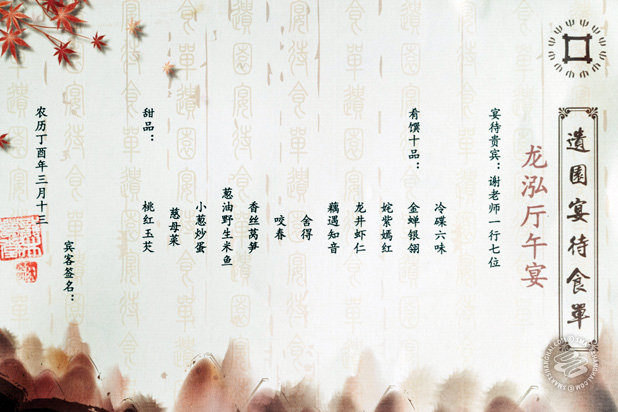 遺園宴待食單
龙泓厅午宴
宴待贵宾：谢老师一行七位
肴馔十品：
冷碟六味
金蝉银翎
姹紫嫣红
龙井虾仁
藕遇知音
舍得
咬春
香丝莴笋
葱油野生米鱼
小葱炒蛋
慈母菜
甜品：
桃红玉芡
宾客签名：
农历丁酉年三月十三